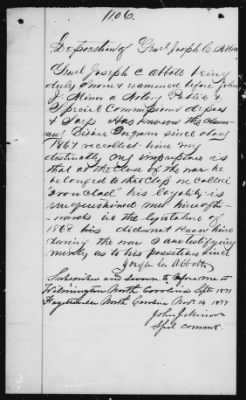 1106.
Deposition of Genl Joseph C Abbott
Genl Joseph C Abbott being
duly sworn & examined before John
J Minor a Notary Public &
Special Commissioner deposes
& Says Has known the claim
ant since about
1867 recollect him very
distinctly my impression is
that at the close of the war he
belonged to that class we called
Iron clad his loyalty is
unquestioned met him
in the legislature of
1868 did not know him
during the war I am testifying
merely as to his position since
Joseph C. Abbott
Subscribed and sworn to before me at
Wilmington North Carolina Sept 1877
Fayetteville North Carolina Nov. 14 1877
John J Minor
Spl comr.